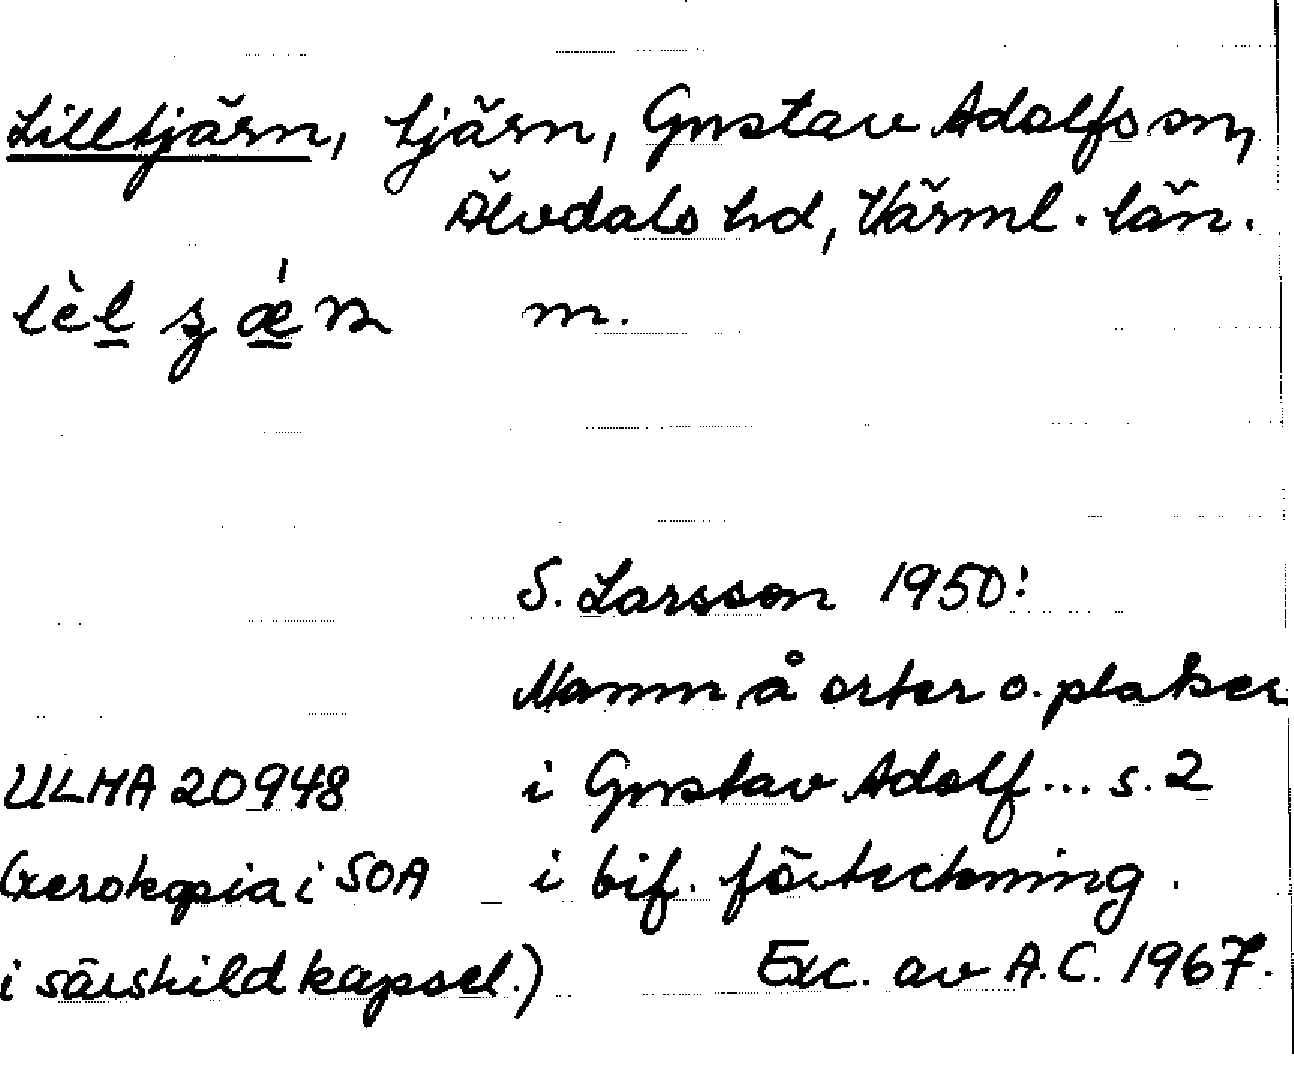 Lilltjärn, tjärn, Gustav Adolfs sn,
Älvdals hd, Värml. län.
lèlʂǽɳ m.
S. Larsson 1950:
Namn å orter o. platser
ULMA 20948 i Gustav Adolf... s. 2
(xerokopia i SOA i bif. förteckning.
i särskild kapsel.) Exc. av A.C. 1967.